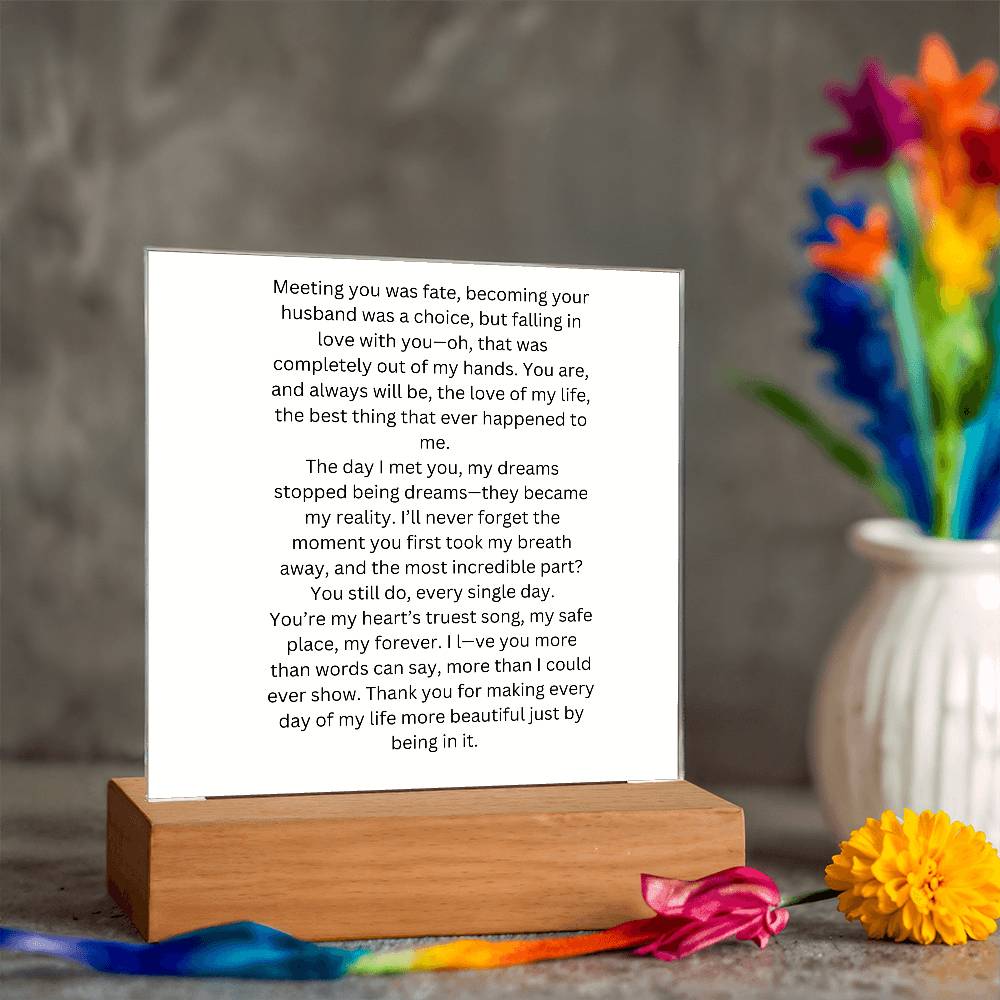 Meeting you was fate, becoming your
husband was a choice, but falling in
love with you—oh, that was
completely out of my hands. You are,
and always will be, the love of my life,
the best thing that ever happened to
me.
The day I met you, my dreams
stopped being dreams—they became
my reality. I’ll never forget the
moment you first took my breath
away, and the most incredible part?
You still do, every single day.
You’re my heart’s truest song, my safe
place, my forever. I l—ve you more
than words can say, more than I could
ever show. Thank you for making every
day of my life more beautiful just by
being in it.